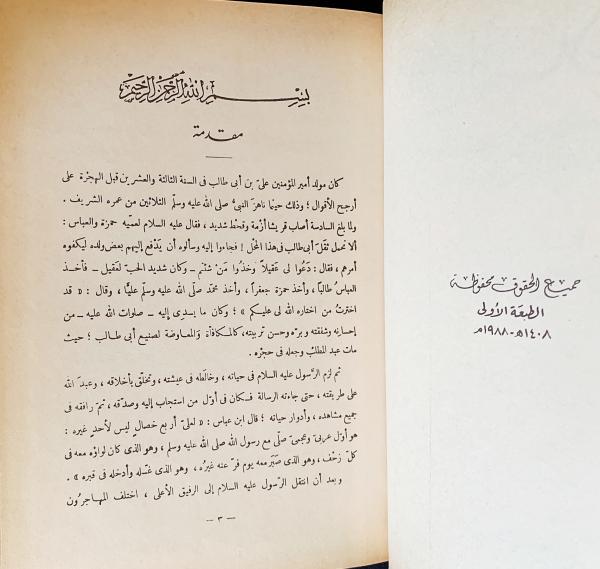 جميع الحقوق محفوظة
الطبعة الأولى
١٤٠٨هـ - ١٩٨٨م
بسم الله الرحمن الرحيم
مقدمة
كان مولد أمير المؤمنين علىّ بن أبى طالب فى السنة الثالثة والعشرين قبل الهجرة على
أرجح الأقوال ؛ وذلك حينما ناهز النبىّ صلى الله عليه وسلّم الثلاثين من عمره الشريف .
ولما بلغ السادسة أصاب قريشا أزمة وقحط شديد ، فقال عليه السلام لعمّيه حمزة والعباس :
ألا نحمل ثقل أبى طالب فى هذا المحْل ! فجاءوا إليه وسألوه أن يدْفع إليهم بعض ولده ليكفوه
أمرهم ، فقال : دَعُوا لى عَقيلًا وخذُوا مَنْ شئتم – وكان شديد الحبّ لعَقيل – فأخذ
العباسُ طالبًا ، وأخذ حمزة جعفرا ، وأخذ محمّد صلّى الله عليه وسلّم عليًّا ، وقال : « قد
اخترتُ من اختاره الله لى عليكم » ؛ وكان ما يسدى إليه – صلوات الله عليه – من
إحسانه وشفقته وبرّه وحسن تربيته ، كالمكافأة والمعاوضة لصنيع أبى طالب ؛ حيث
مات عبد المطلب وجعله فى حجْره .
ثم لزم الرَّسول عليه السلام فى حياته ، وخالَطه فى عيشته ، وتخلَّق بأخلاقه ، وعبدَ الله
على طريقته ، حتى جاءته الرسالة فسكان فى أوّل من استجاب إليه وصدّقه ، ثمّ رافقه فى
جميع مشاهده ، وأدوار حياته ؛ قال ابن عباس : « لعلىّ أربع خصالٍ ليس لأحدٍ غيره :
هو أوّل عربىّ وعجمىّ صلّى مع رسول الله صلى الله عليه وسلم ، وهو الذى كان لواؤه معه فى
كلّ زحْف ، وهو الذى صَبَر معه يوم فرّ عنه غيرُه ، وهو الذى غسّله وأدخله فى قبره » .
وبعد أن انتقل الرّسول عليه السلام إلى الرفيق الأعلى ، اختلف المهاجرُون
– ٣ –